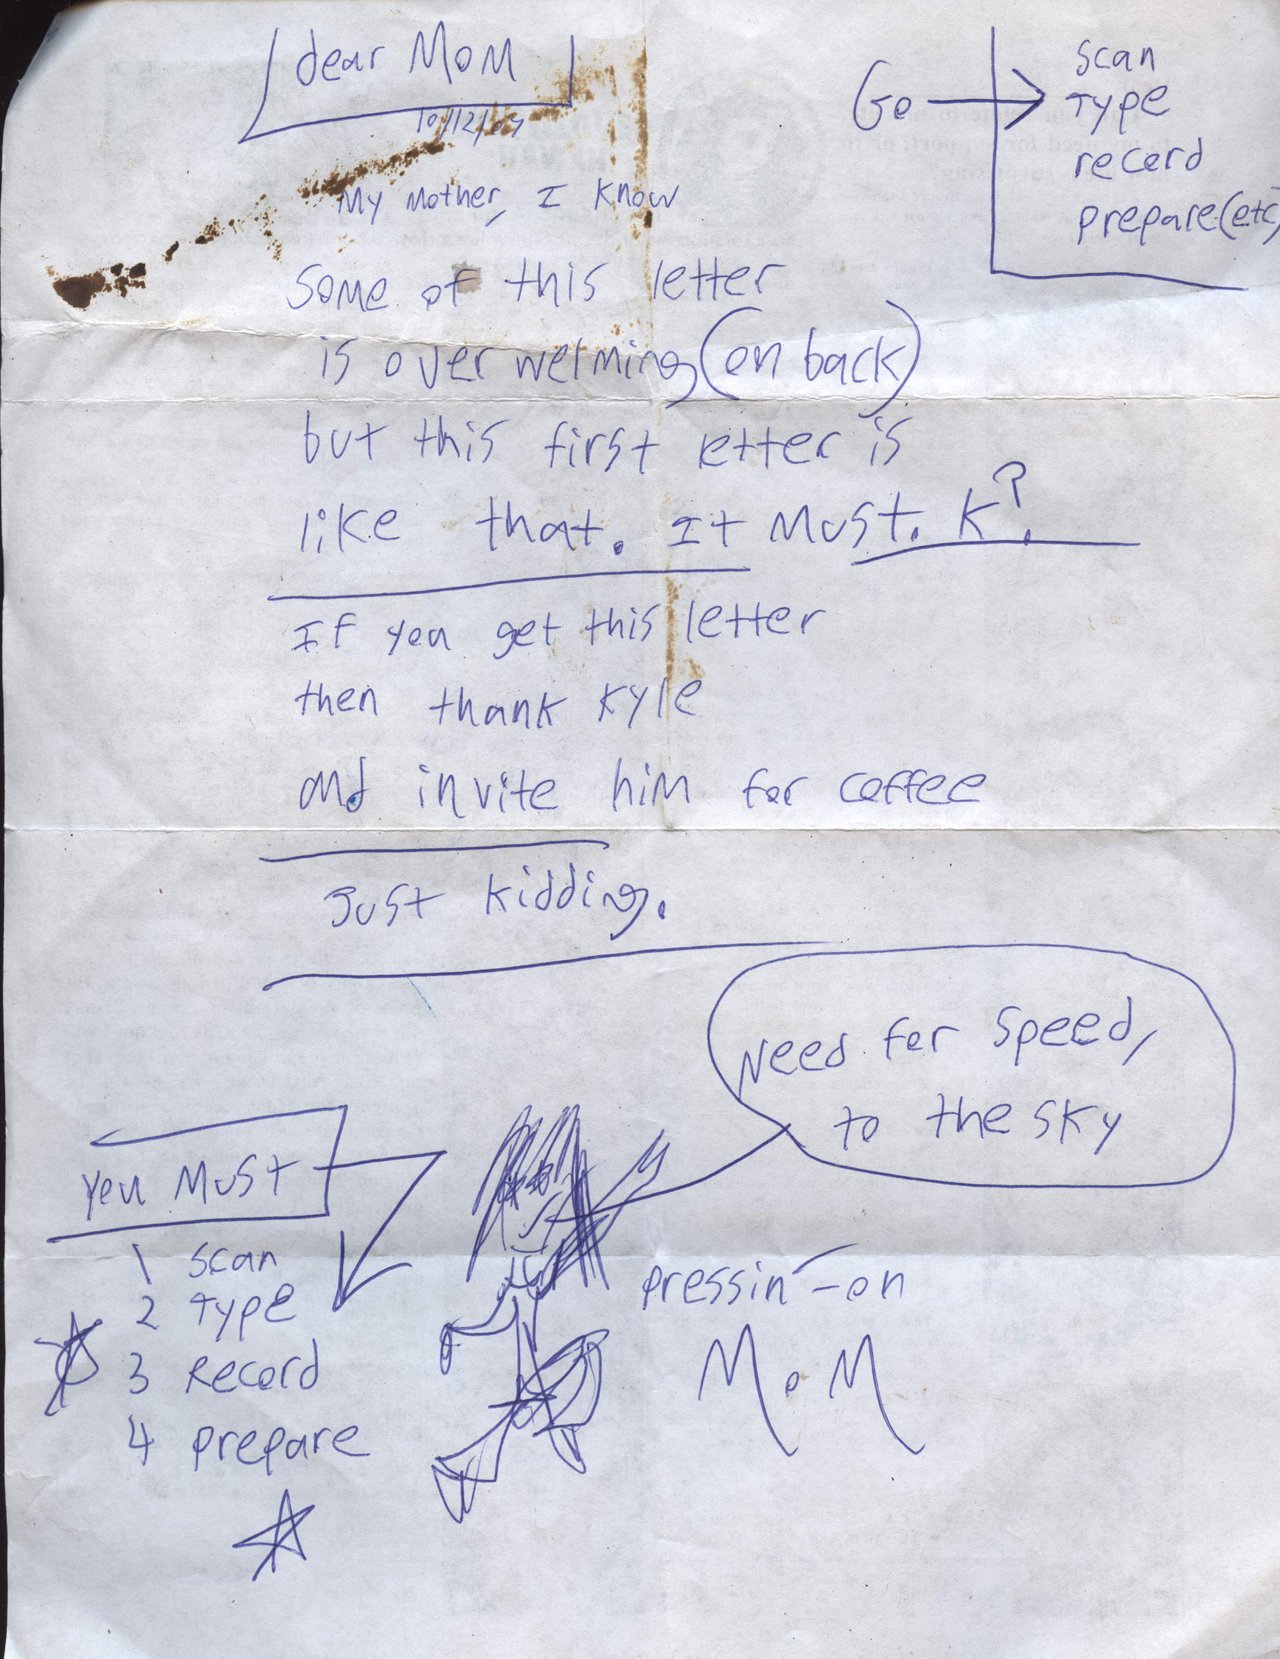 dear MoM
10/12/07
My Mother, I know
some of this letter
is over welming (on back)
but this first letter is
like that. It Must. K?
If you get this letter
then thank Kyle
and invite him for coffee
Just kidding.
Go
scan
Type
record
prepare (etc)
Need for speed,
to the sky
you Must
1 scan
2 Type
3 Record
4 prepare
pressin'-on
MoM